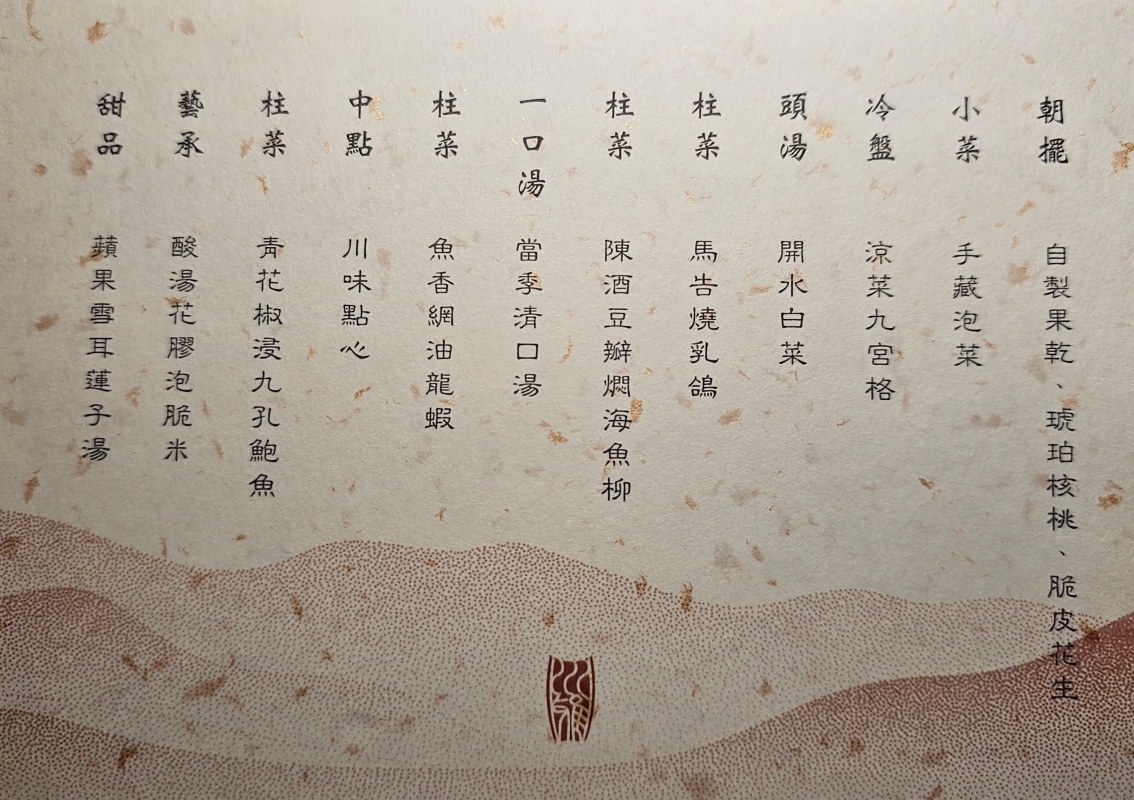 朝擺 自製果乾、琥珀核桃、脆皮花生
小菜 手藏泡菜
冷盤 涼菜九宮格
頭湯 開水白菜
柱菜 馬告燒乳鴿
柱菜 陳酒豆瓣燜海魚柳
一口湯 當季清口湯
柱菜 魚香網油龍蝦
中點 川味點心
柱菜 青花椒浸九孔鮑魚
藝承 酸湯花膠泡脆米
甜品 蘋果雪耳蓮子湯
川雅